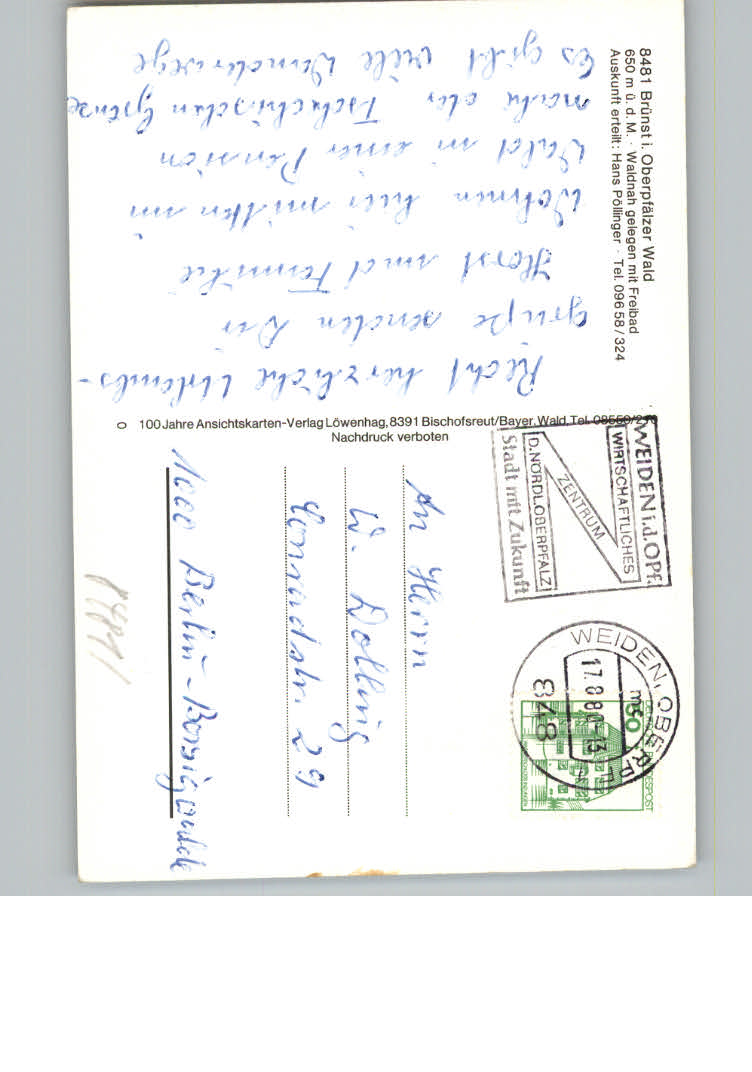 8481 Brünst i. Oberpfälzer Wald
650 m ü. d. M. · Waldnah gelegen mit Freibad
Auskunft erteilt: Hans Pöllinger · Tel. 09658/324
Recht herzliche Urlaubs-
grüße senden Dir
Horst und Familie
Wohnen hier mitten im
Wald in einer Pension
nahe der Tschechischen Grenze
Es gibt viele Wanderwege
100 Jahre Ansichtskarten-Verlag Löwenhag, 8391 Bischofsreut/Bayer. Wald, Tel. 08550/
Nachdruck verboten
WEIDEN i.d.OPf.
WIRTSCHAFTLICHES
ZENTRUM
D.NÖRDL.OBERPFALZ
Stadt mit Zukunft
WEIDEN, OBERPF
17.8.80-13
mc
848
50
DEUTSCHE BUNDESPOST
An Herrn
W. Dolling
Conradstr. 29
1000 Berlin-Borsigwalde